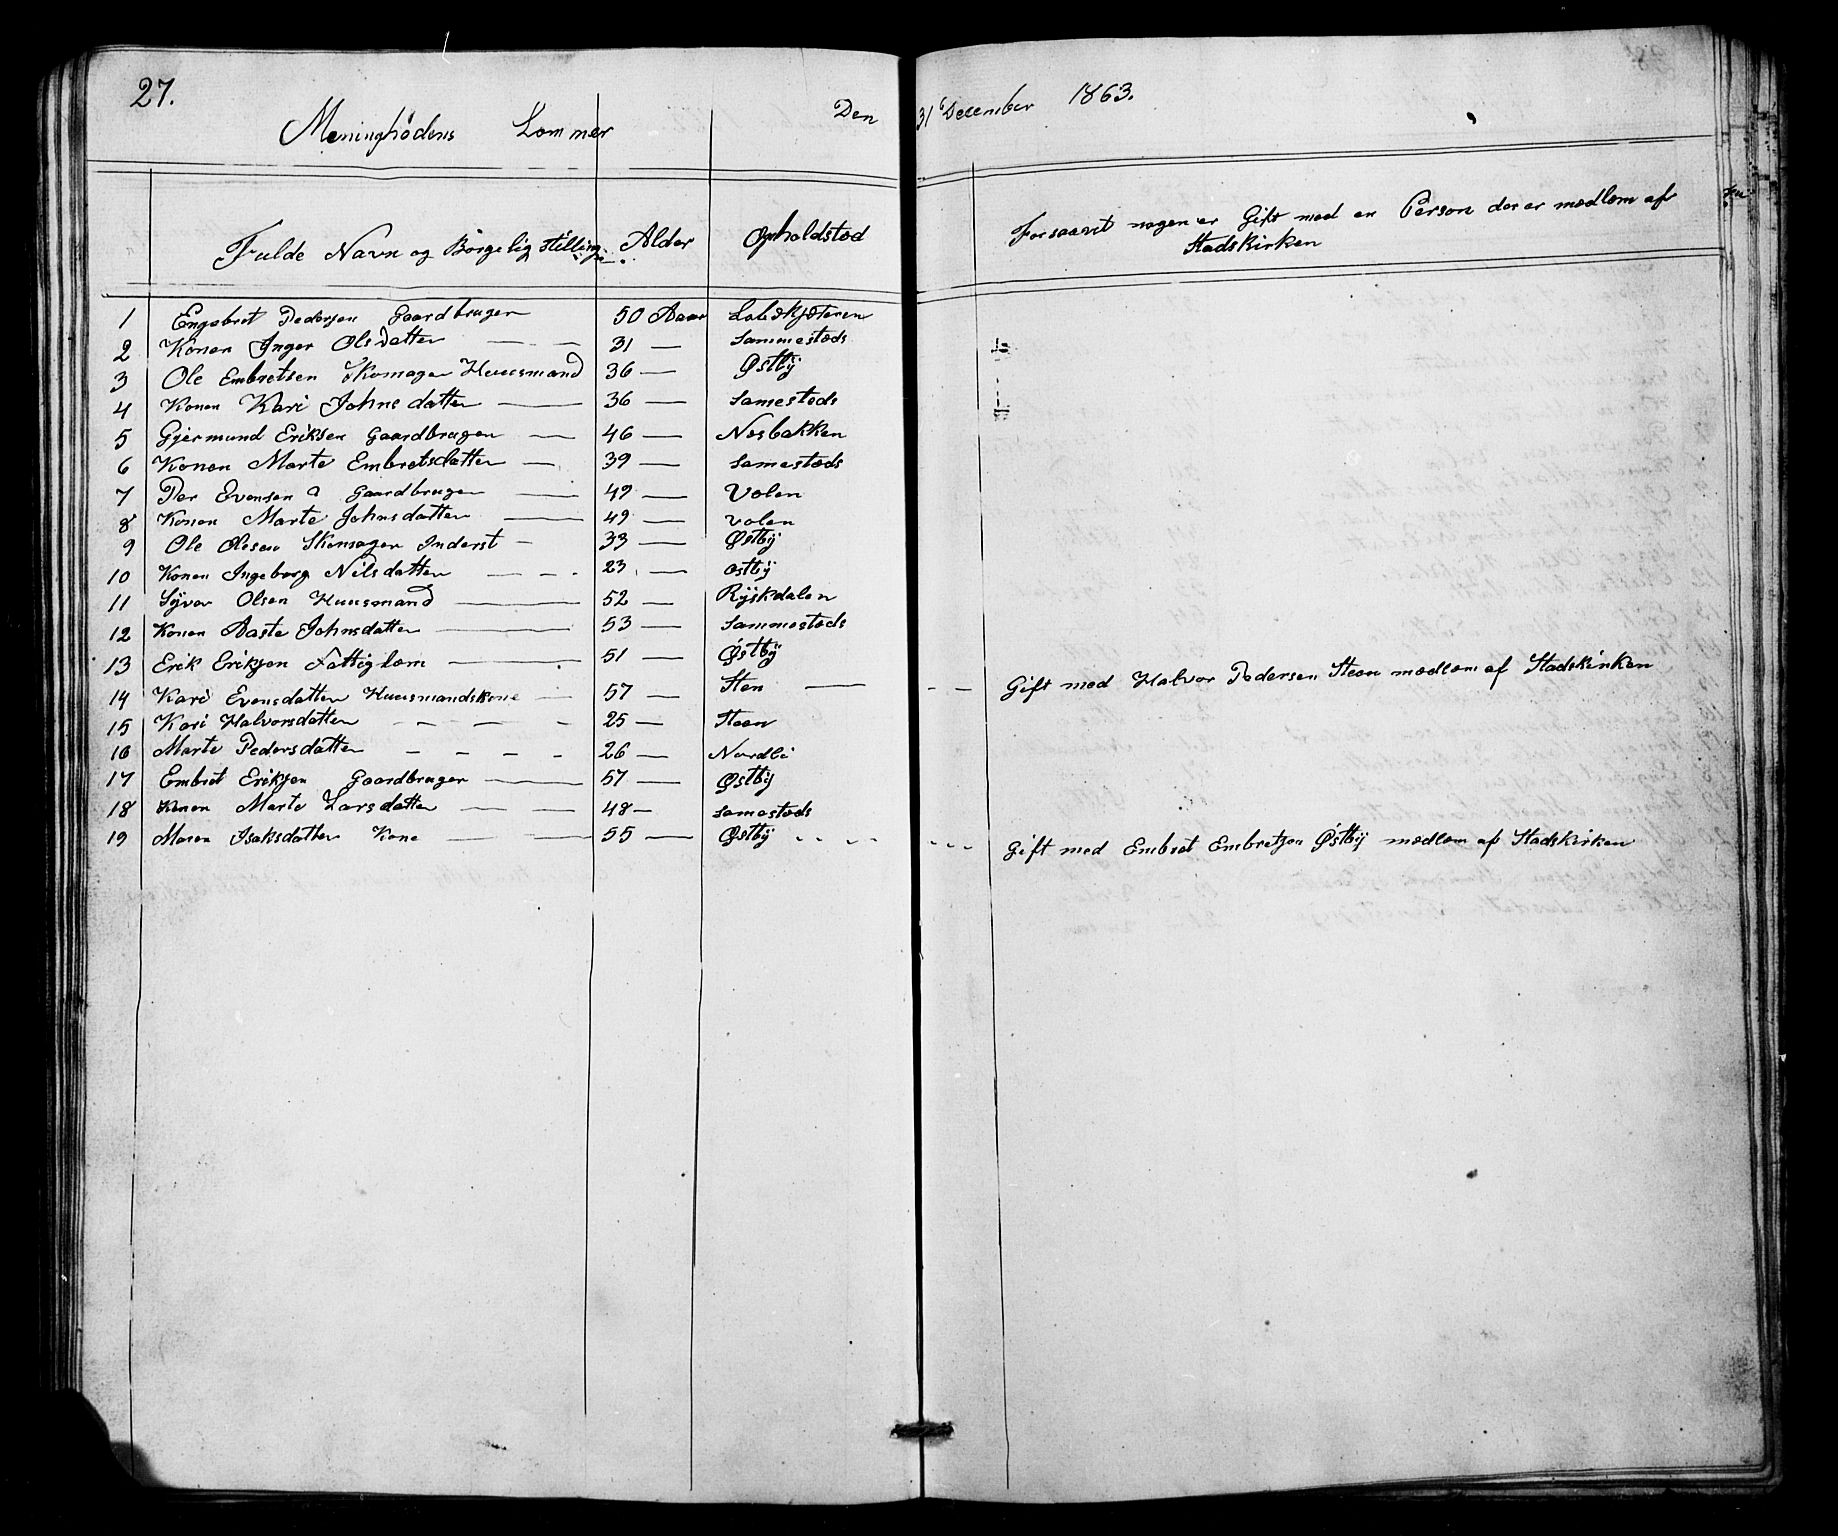 27.
Meninghødens Lemmer
Den 31 December 1863.
Fulde Navn og Børgelig Stilling Alder Opholdsted Forsaavit nogen er Gift med en Person der er medlem af
Stadskirken
1 Engebret Pedersen Gaardbruger 50 Aaar
2 Konen Inger Olsdatter 31 — Sammesteds
3 Ole Embretsen Skomager Huusmand 36 — Østby
4 Konen Kari Johnsdatter — 36 — Samesteds
5 Gjermund Eriksen Gaardbruger — 46 — Nesbakken
6 Konen Marte Embretsdatter — 39 — Samesteds
7 Per Evensen Gaardbruger — 49 — Volen
8 Konen Marte Johnsdatter — 49 — Volen
9 Ole Olesen Skomager Inderst – 33 — Østby
10 Konen Ingeborg Nilsdatter — 23 — Østby
11 Syver Olsen Huusmand — 52 — Ryskdalen
12 Konen Aaste Johnsdatter — 53 — Sammesteds
13 Erik Eriksen Fattiglem — 51 — Østby
14 Kari Evensdatter Huusmandskone — 57 — Sten — – – Gift med Halvor Pedersen Steen medlem af Stadskirken
15 Kari Halvorsdatter – – – – 25 — Steen
16 Marte Pedersdatter – – – – 26 — Nordli
17 Embret Eriksen Gaardbruger — 57 — Østby
18 Konen Marte Larsdatter — — 48 — Samesteds
19 Maren Isaksdatter Kone — 55 — Østby Gift med Embret Embretsen Østby medlem af Stadskirken